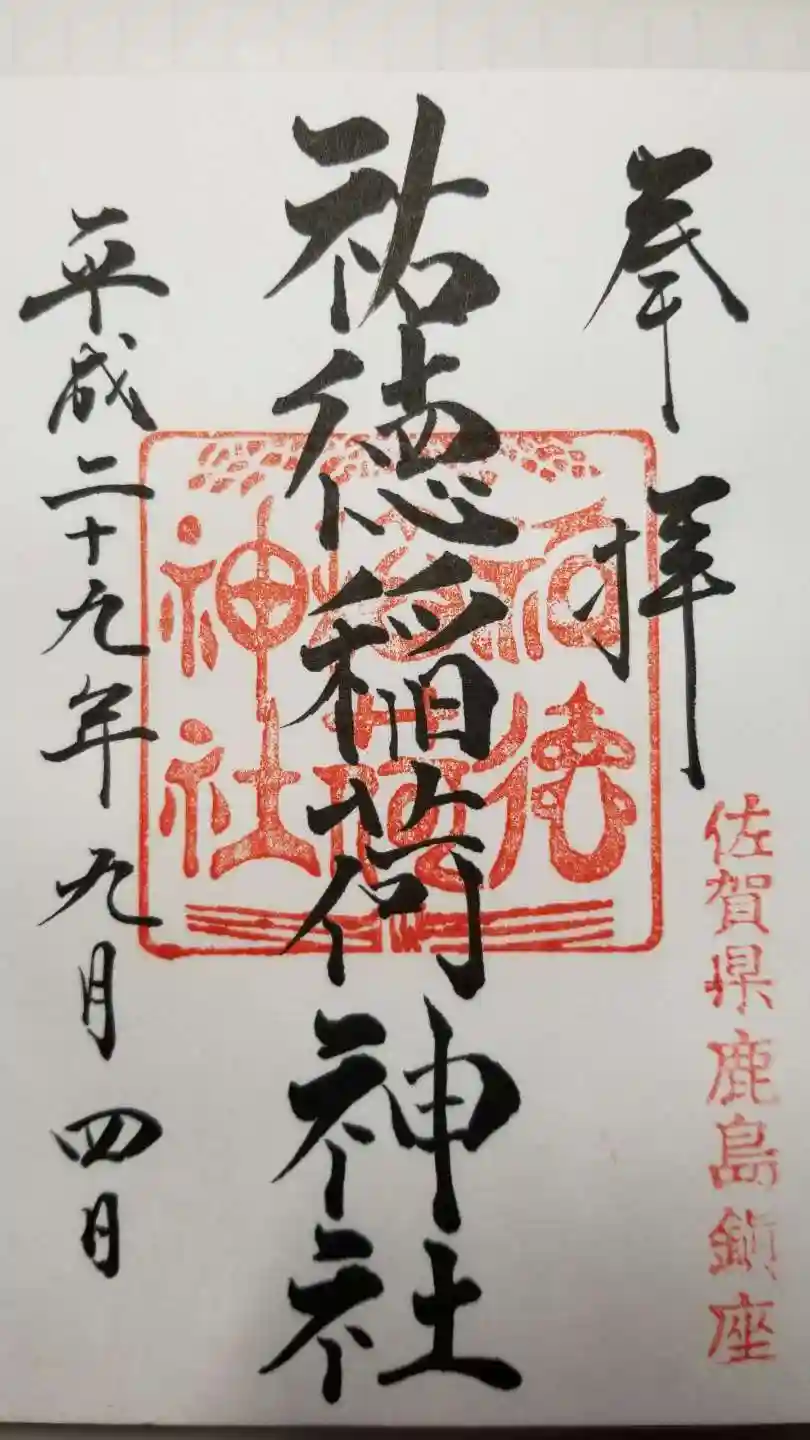 奉拝
佐賀県鹿島鎮座
祐徳稲荷神社
祐徳
稲荷
神社
平成二十九年九月四日